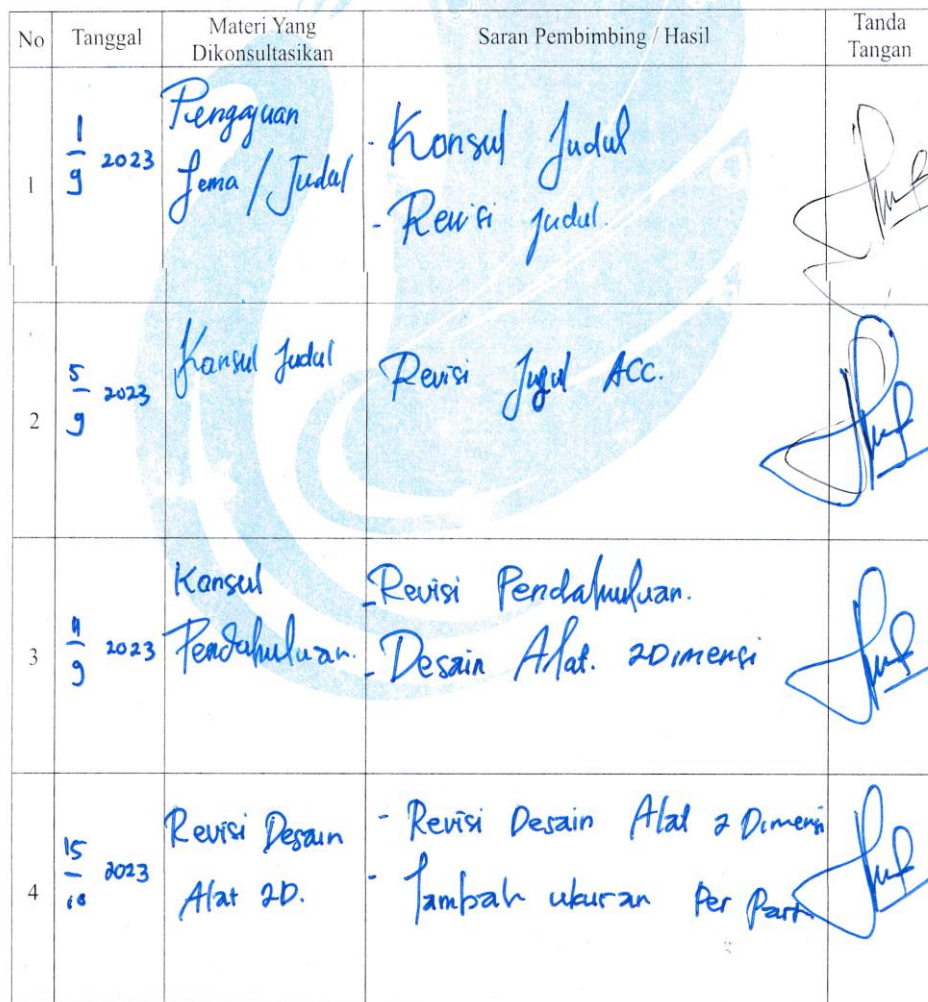 No Tanggal Materi Yang Dikonsultasikan Saran Pembimbing / Hasil Tanda Tangan
1 1/9 2023
Pengajuan
Tema / Judul
- Konsul Judul
- Revisi judul.
2 5/9 2023
Konsul Judul
Revisi Judul ACC.
3 11/9 2023
Konsul
Pendahuluan.
- Revisi Pendahuluan.
- Desain Alat. 2Dimensi
4 15/10 2023
Revisi Desain
Alat 2D.
- Revisi Desain Alat 2 Dimensi
- Tambah ukuran Per Part